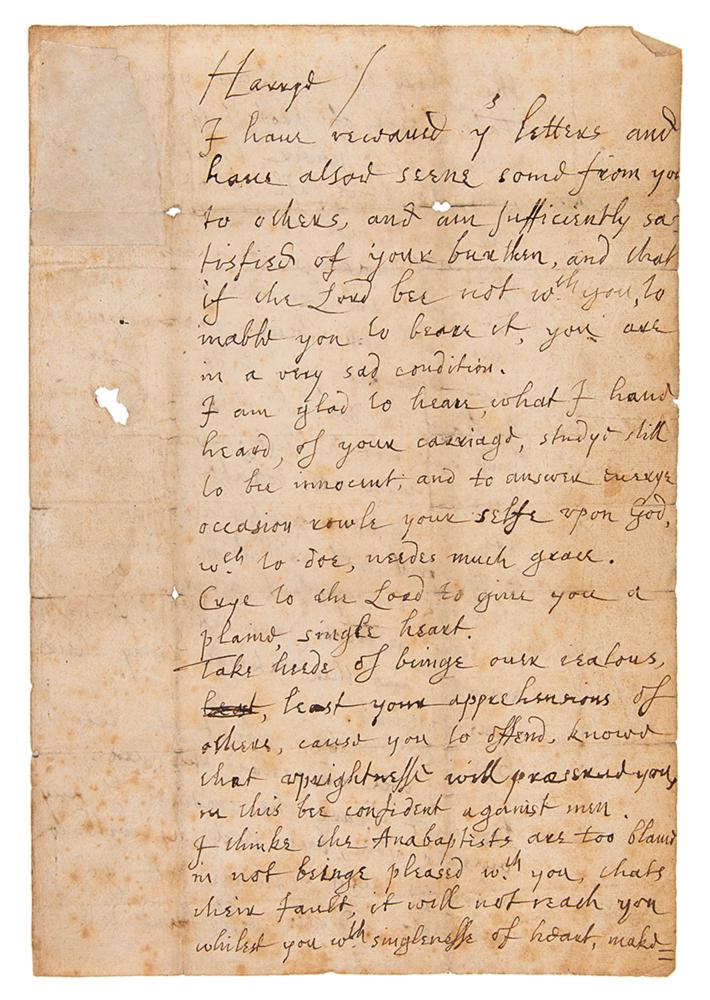 Harrye /
I haue receaued yr letters and
haue alsoe seene some from you
to others, and am sufficiently sa-
tisfied of your burthen, and that
if the Lord bee not wth you, to
inable you to beare it, you are
in a very sad condition.
I am glad to heare what I haue
heard, of your carriage, studye still
to bee innocent, and to answer euerye
occasion rowle your selfe vpon God,
wch to doe, needes much grace.
Crye to the Lord to giue you a
plaine, single heart.
Take heede of beinge ouer iealous,
least, least your apprehensions of
others, cause you to offend, knowe
that vprightnesse will preserue you,
in this bee confident against men.
I thinke the Anabaptists are too blame
in not beinge pleased wth you, thats
their fault, it will not reach you
whilest you wth singlenesse of heart, make=